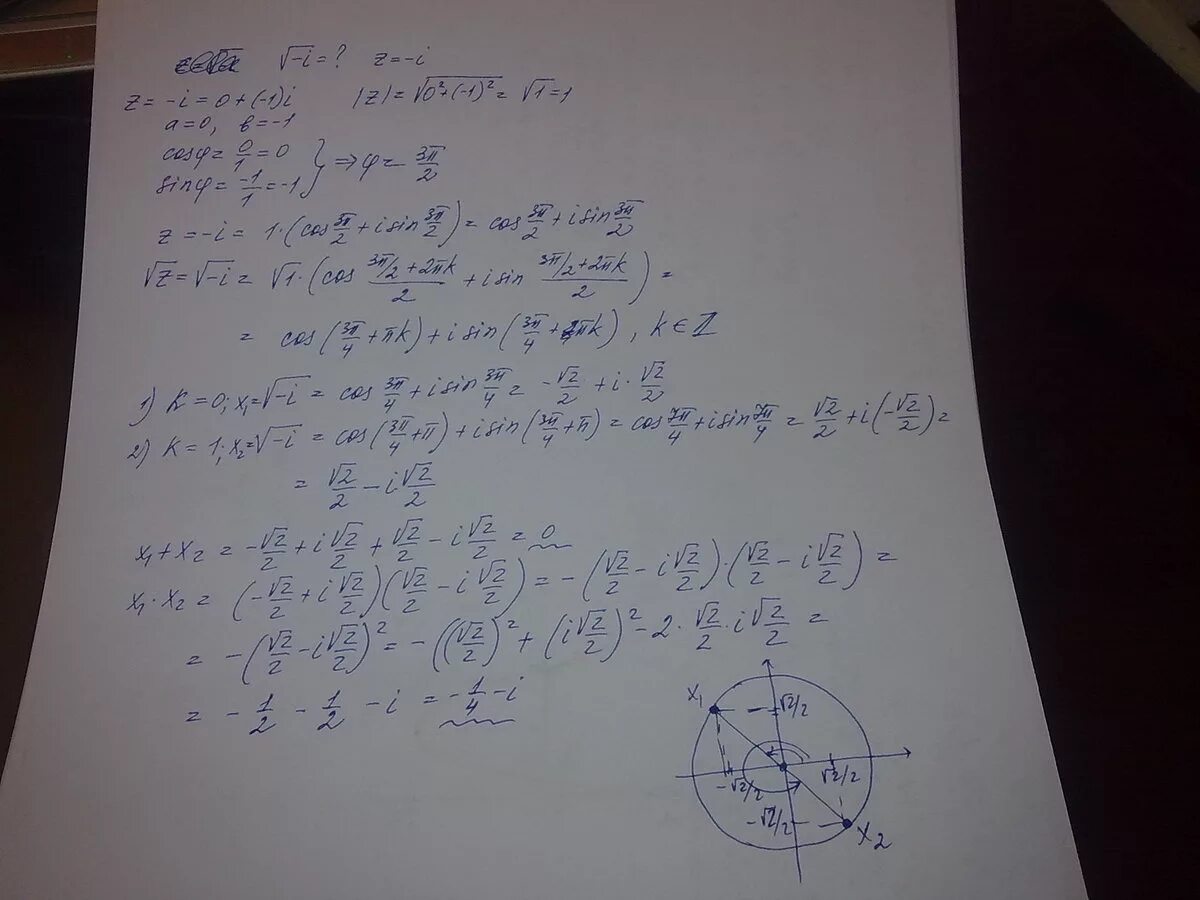 √-i = ? z = -i
z = -i = 0 + (-1)i |z| = √(0² + (-1)²) = √1 = 1
a = 0, в = -1
cosφ = 0/1 = 0
sinφ = -1/1 = -1 } ⇒ φ = 3π/2
z = -i = 1·(cos 3π/2 + i sin 3π/2) = cos 3π/2 + i sin 3π/2
√z = √-i = √1·(cos (3π/2 + 2πk)/2 + i sin (3π/2 + 2πk)/2) =
= cos(3π/4 + πk) + i sin(3π/4 + πk), k ∈ Z
1) K = 0; x₁ = √-i = cos 3π/4 + i sin 3π/4 = -√2/2 + i·√2/2
2) K = 1; x₂ = √-i = cos(3π/4 + π) + i sin(3π/4 + π) = cos 7π/4 + i sin 7π/4 = √2/2 + i(-√2/2) =
= √2/2 - i√2/2
x₁ + x₂ = -√2/2 + i√2/2 + √2/2 - i√2/2 = 0
x₁·x₂ = (-√2/2 + i√2/2)(√2/2 - i√2/2) = -(√2/2 - i√2/2)·(√2/2 - i√2/2) =
= -(√2/2 - i√2/2)² = -((√2/2)² + (i√2/2)² - 2·√2/2·i√2/2 =
= -1/2 - 1/2 - i = -1/4 - i
x₁
√2/2
-√2/2
√2/2
-√2/2
x₂